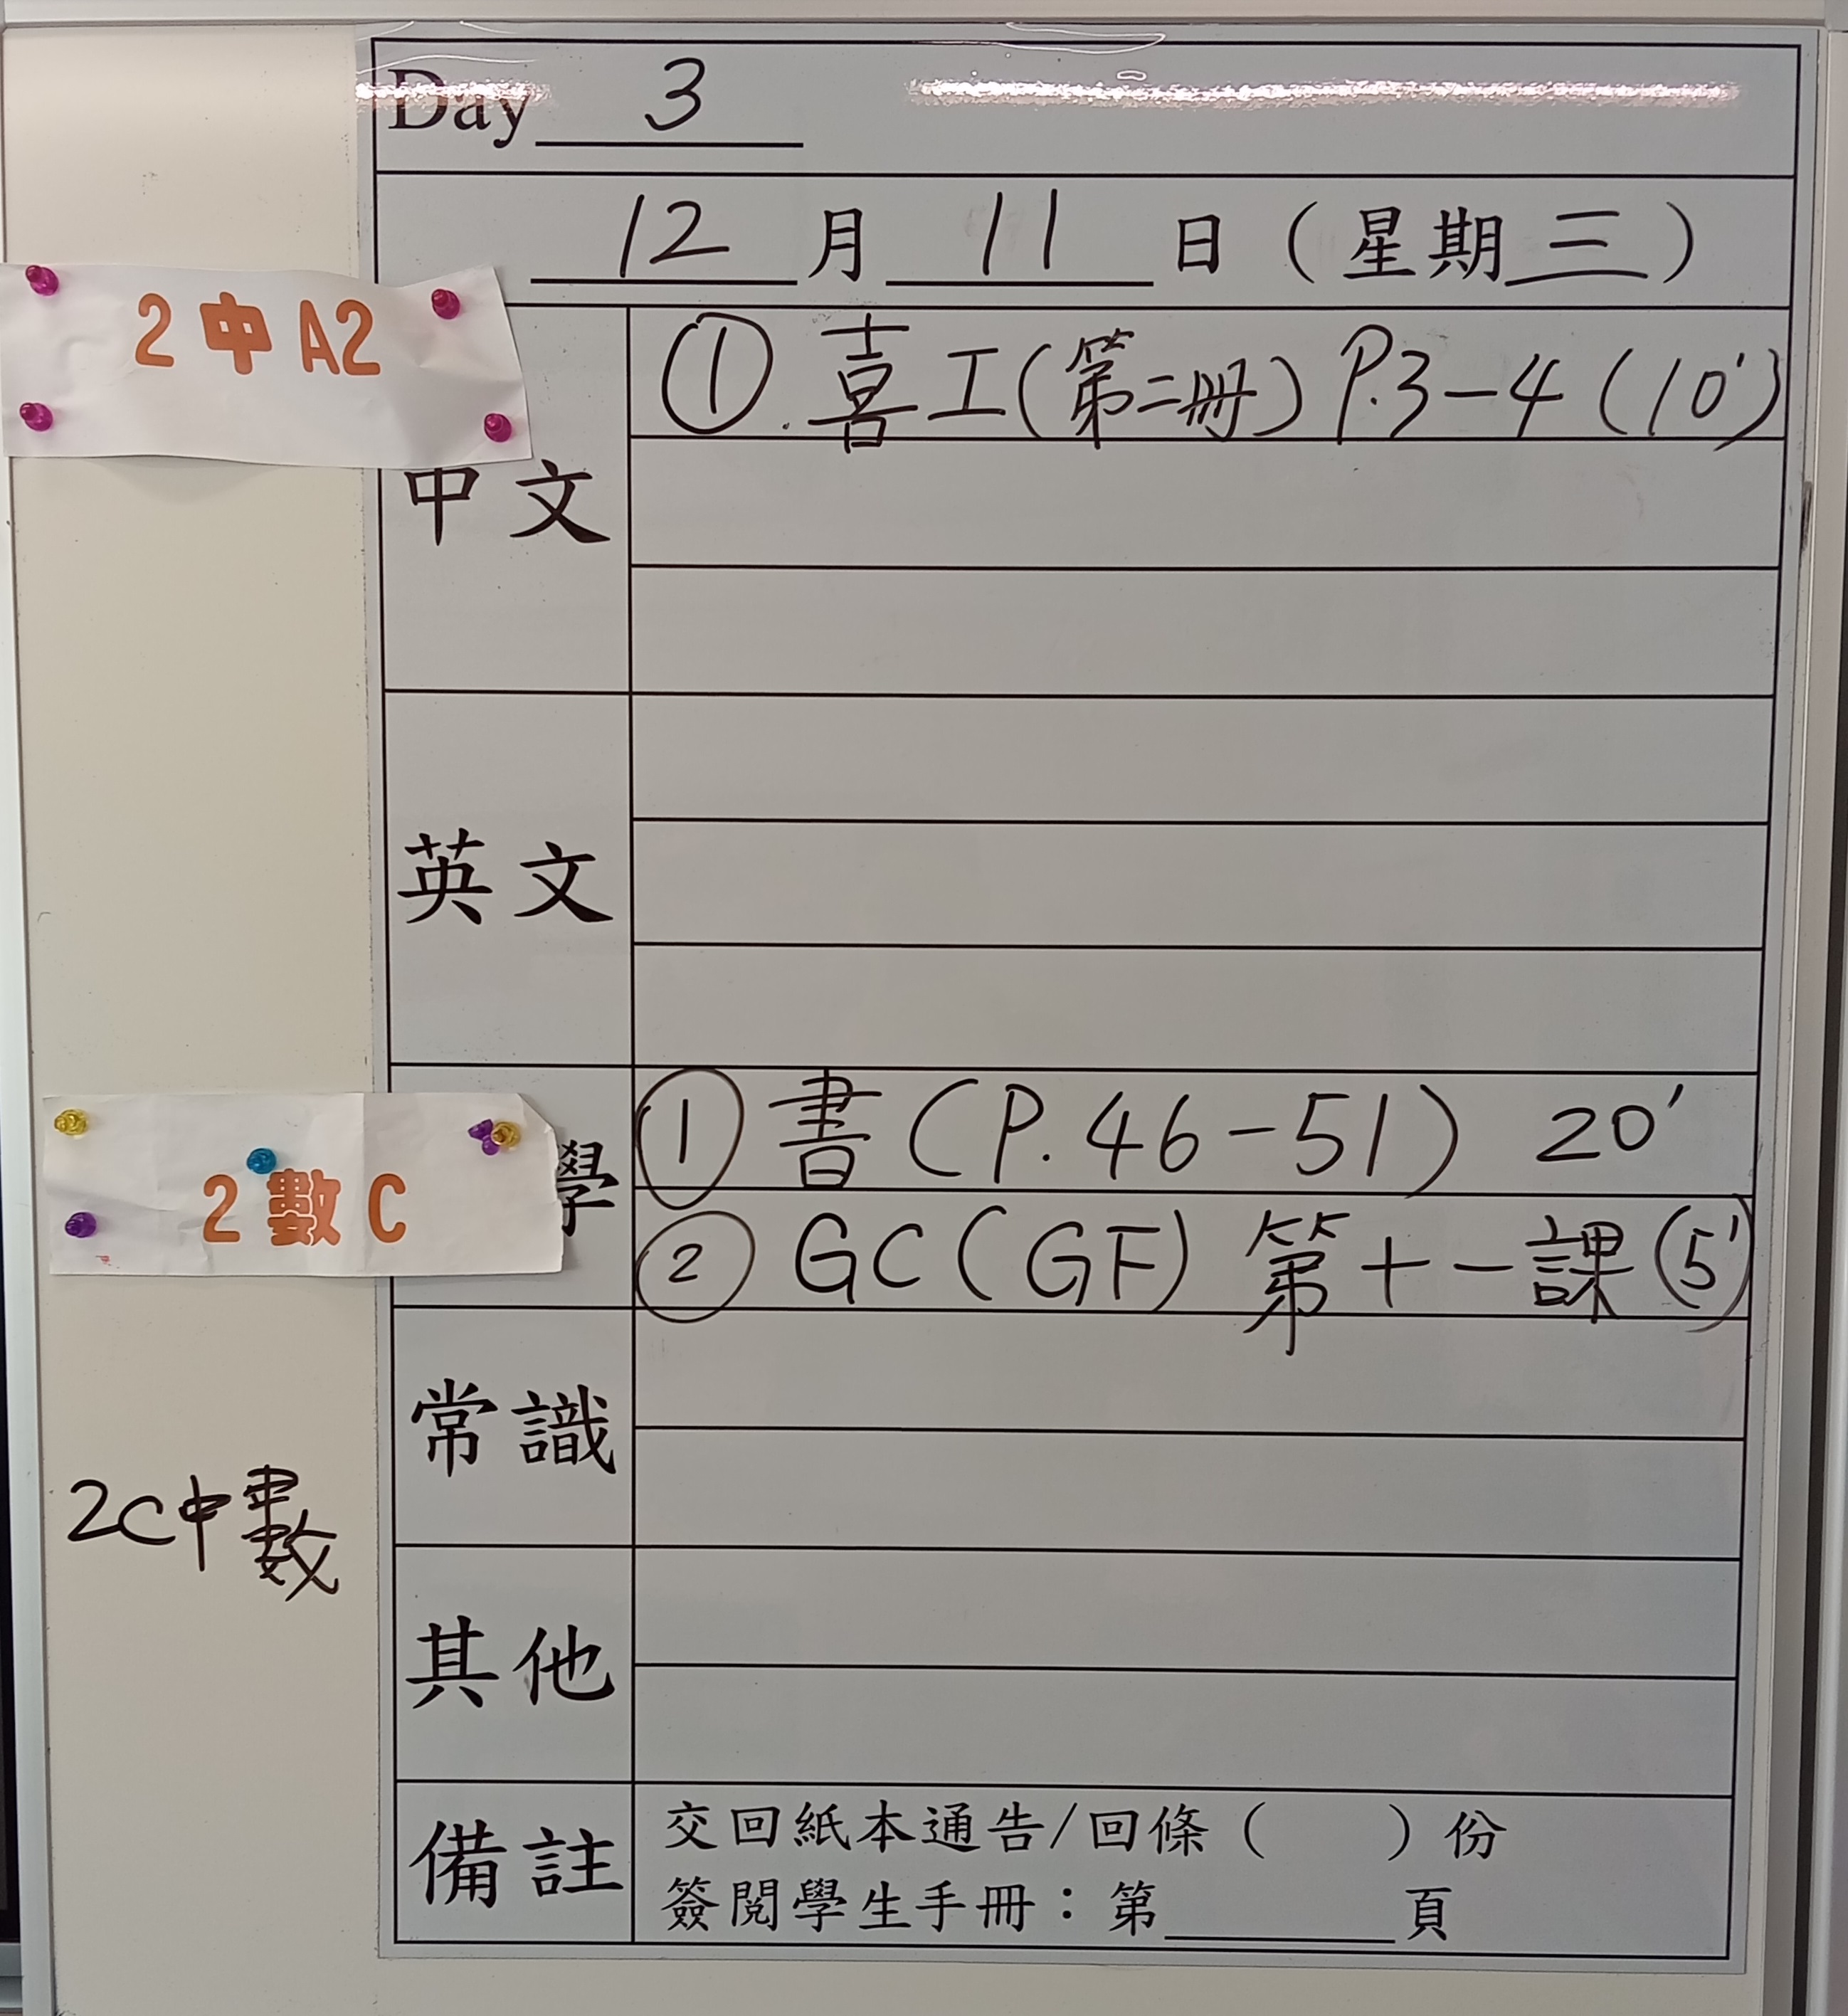 Day 3
12 月 11 日 ( 星期 三 )
2 中 A2
中文
① 喜工(第二冊) P.3-4 (10')
英文
2 數 C
學
① 書 (P.46-51) 20'
② GC (GF) 第十一課 (5')
常識
2C中數
其他
備註
交回紙本通告/回條 ( ) 份
簽閱學生手冊：第______頁